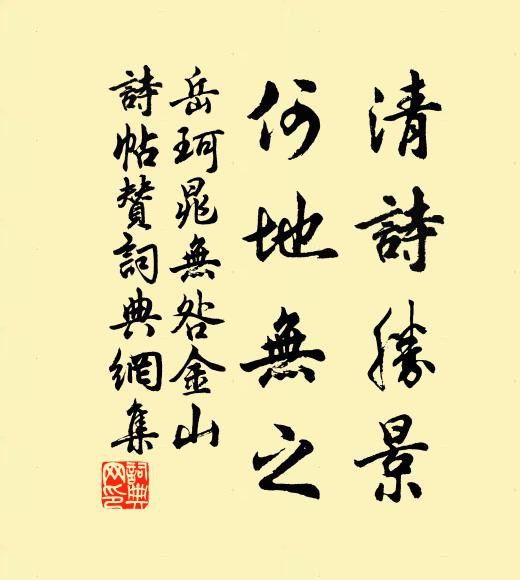 清詩勝景
何地無之
岳珂晁無咎金山
詩帖贊詞典網集
詞典网印